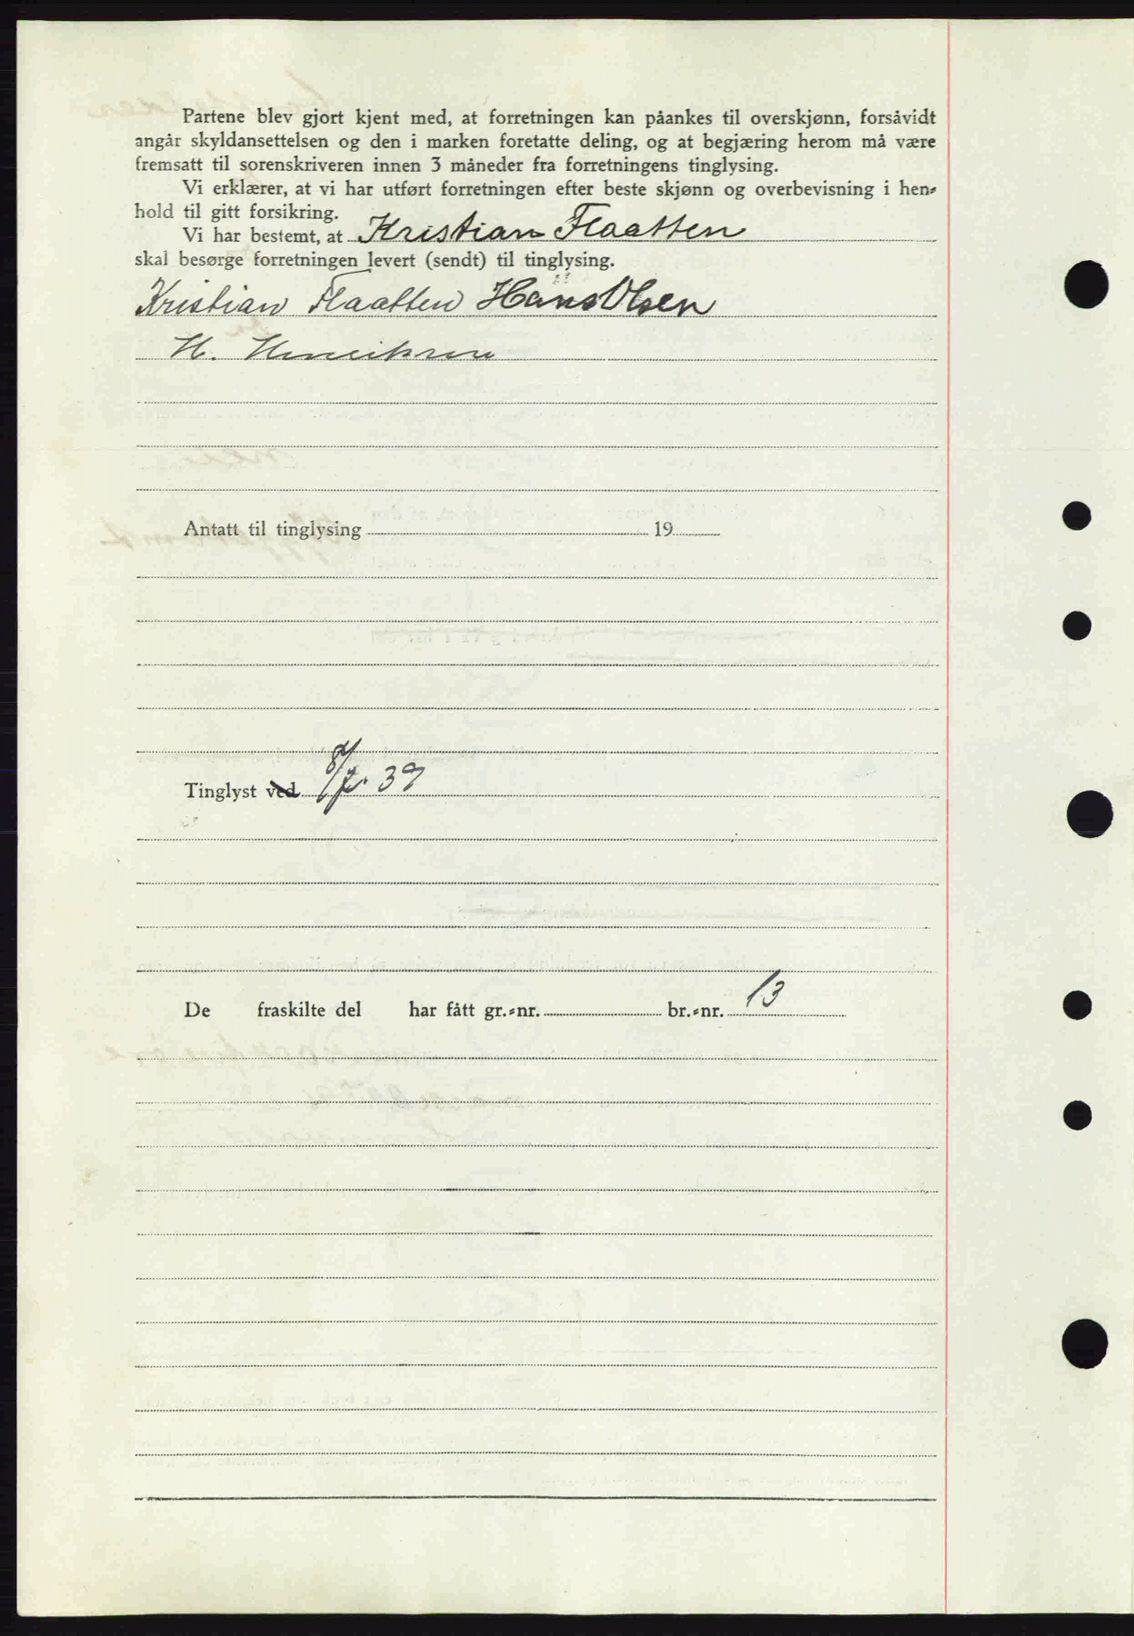 Partene blev gjort kjent med, at forretningen kan påankes til overskjønn, forsåvidt
angår skyldansettelsen og den i marken foretatte deling, og at begjæring herom må være
fremsatt til sorenskriveren innen 3 måneder fra forretningens tinglysing.
Vi erklærer, at vi har utført forretningen efter beste skjønn og overbevisning i hen-
hold til gitt forsikring.
Vi har bestemt, at Kristian Flaatten
skal besørge forretningen levert (sendt) til tinglysing.
Kristian Flaatten Hans Olsen
H. Henriksen
Antatt til tinglysing 19
Tinglyst ved 8/7. 39
De fraskilte del har fått gr.-nr. br.-nr. 13